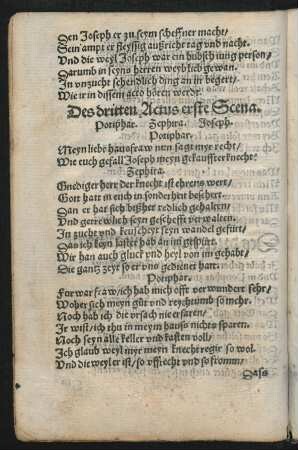 Den Joseph er zu seym scheffner macht/
Sein ampt er fleyssig außricht tag vnd nacht.
Vnd die weyl Joseph war ein hübsch iung person/
Darumb in seyns herren weyb lieb gewan.
In vnzucht schendlich ding an in begert/
Wie ir in dissem acto hören werdt.
Des dritten Actus erste Scena.
Potiphar. Zephira. Joseph.
Potiphar.
Meyn liebe haußfraw nun sagt mye recht/
Wie euch gefall Joseph meyn gekauffter knecht?
Zephira.
Gnediger herr der knecht ist ehrens wert/
Gott hatt in euch in sonderheit beschert.
Dan er hat sich bißher redlich gehalten/
Vnd getrewlich seyn geschefft verwalten.
In zucht vnd keuscheyt seyn wandel gefürt/
Dan ich keyn laster hab an im gespürt.
Wir han auch glück vnd heyl von im gehabt/
Die gantz zeyt so er vns gedienet hatt.
Potiphar.
Fur war fraw/ich hab mich offt verwundert sehr/
Woher sich meyn gůt vnd reychtumb so mehr.
Noch hab ich die vrsach nie erfaren/
Ir wist/ich thu in meym hauß nichts sparen.
Noch seyn alle keller vnd kasten voll/
Ich glaub weyl mye meyn knecht regir so wol.
Vnd die weyl er ist/so vffrecht vnd so fromm/
Dass